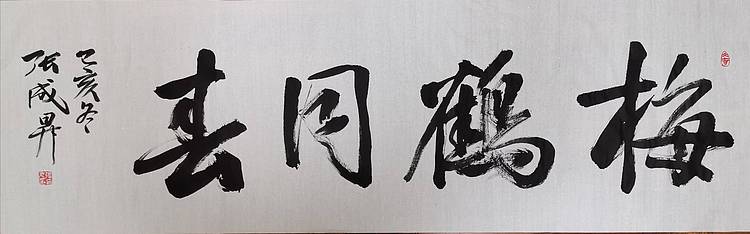 梅鶴同春
己亥冬
张成昇